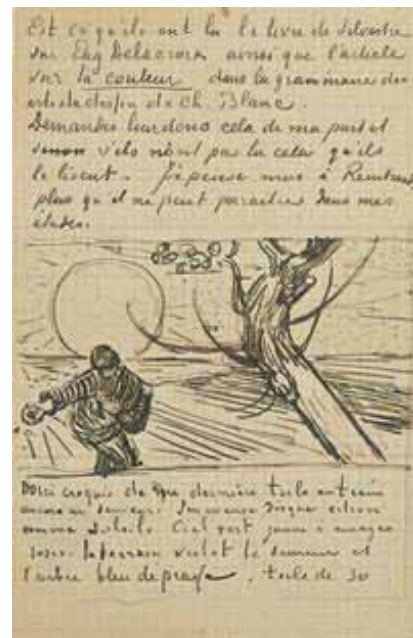 Est ce qu'ils ont lu le livre de Silvestre
sur Eug Delacroix ainsi que l'article
sur la couleur dans la grammaire des
arts du dessin de Ch. Blanc.
Demandez leur donc cela de ma part et
sinon s'ils n'ont pas lu cela qu'ils
le lisent. J'pense moi à Rembrandt
plus qu'il ne peut paraître dans mes
études.
Voici croquis de ma dernière toile en train
encore un semeur. Immense disque citron
comme soleil. Ciel vert jaune à nuages
roses. le terrain violet le semeur et
l'arbre bleu de prusse. toile de 30